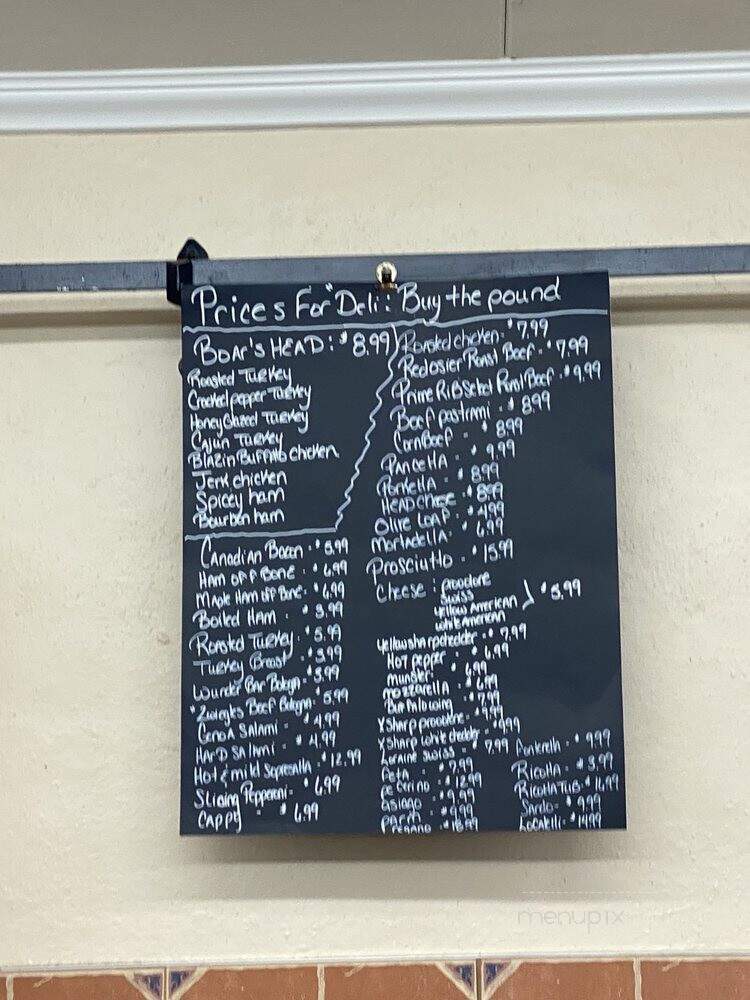 Prices For "Deli: Buy the pound
BOAr's HEAD: $8.99
Roasted Turkey
Cracked pepper Turkey
Honey Glazed Turkey
Cajun Turkey
Blazin Buffalo chicken
Jerk chicken
Spicey ham
Bourbon ham
Canadian Bacon - $5.99
Ham off Bone - $6.99
Maple Ham off Bone - $6.99
Boiled Ham - $3.99
Roasted Turkey - $5.99
Turkey Breast - $3.99
Wunder Bar Bologna - $3.99
*Zweigles Beef Bologna - $5.99
Genoa Salami - $4.99
Hard Salami - $4.99
Hot & mild Sopresatta - $12.99
Slicing Pepperoni - $6.99
CAPPY - $6.99
Roasted chicken - $7.99
Redosier Roast Beef - $7.99
Prime Rib Select Roast Beef - $9.99
Beef pastrami - $8.99
Corn Beef - $8.99
Pancetta - $9.99
Porketta - $8.99
HEAD cheese - $8.99
Olive Loaf - $4.99
Mortadella - $6.99
Prosciutto - $15.99
Cheese: provolone
Swiss
yellow American
white American
$5.99
yellow sharp chedder - $7.99
Hot pepper - $6.99
munster - $6.99
mozzarella - $6.99
Buffalo wing - $7.99
X Sharp provolone -
X Sharp white chedder -
Loraine Swiss - $7.99
Feta - $7.99
- $12.99
Asiago - $9.99
Parm -
Fontenella - $9.99
Ricotta - $3.99
Ricotta Tub - $16.99
Sardo - $9.99
Locatelli - $14.99
menupix